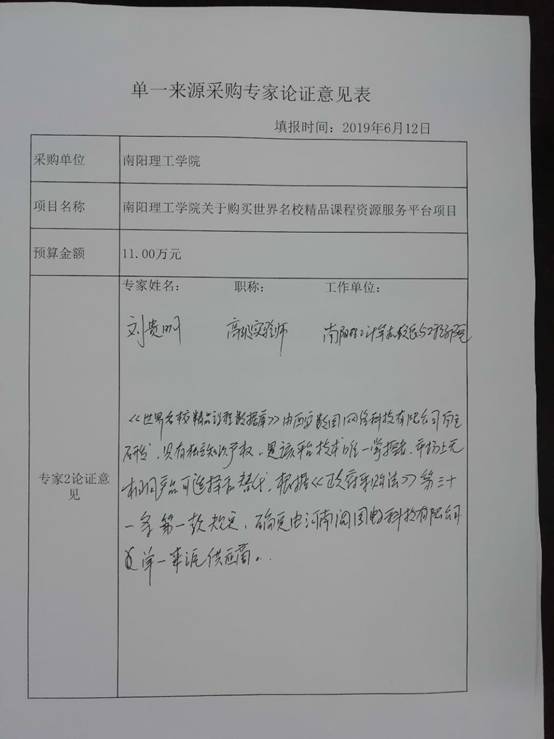 单一来源采购专家论证意见表
填报时间：2019年6月12日
采购单位 南阳理工学院
项目名称 南阳理工学院关于购买世界名校精品课程资源服务平台项目
预算金额 11.00万元
专家姓名： 职称： 工作单位：
刘贵 高级实验师 南阳理工计算机
《世界名校精品课程数据库》由西安 网络科技有限公司自主
研发，具有知识产权，是该平台技术唯一掌握者，市场上无
相同产品可选择及替代。根据《政府采购法》第三十
一条第一款规定，确定由河南 科技有限公司
为单一来源供应商。
专家2论证意
见